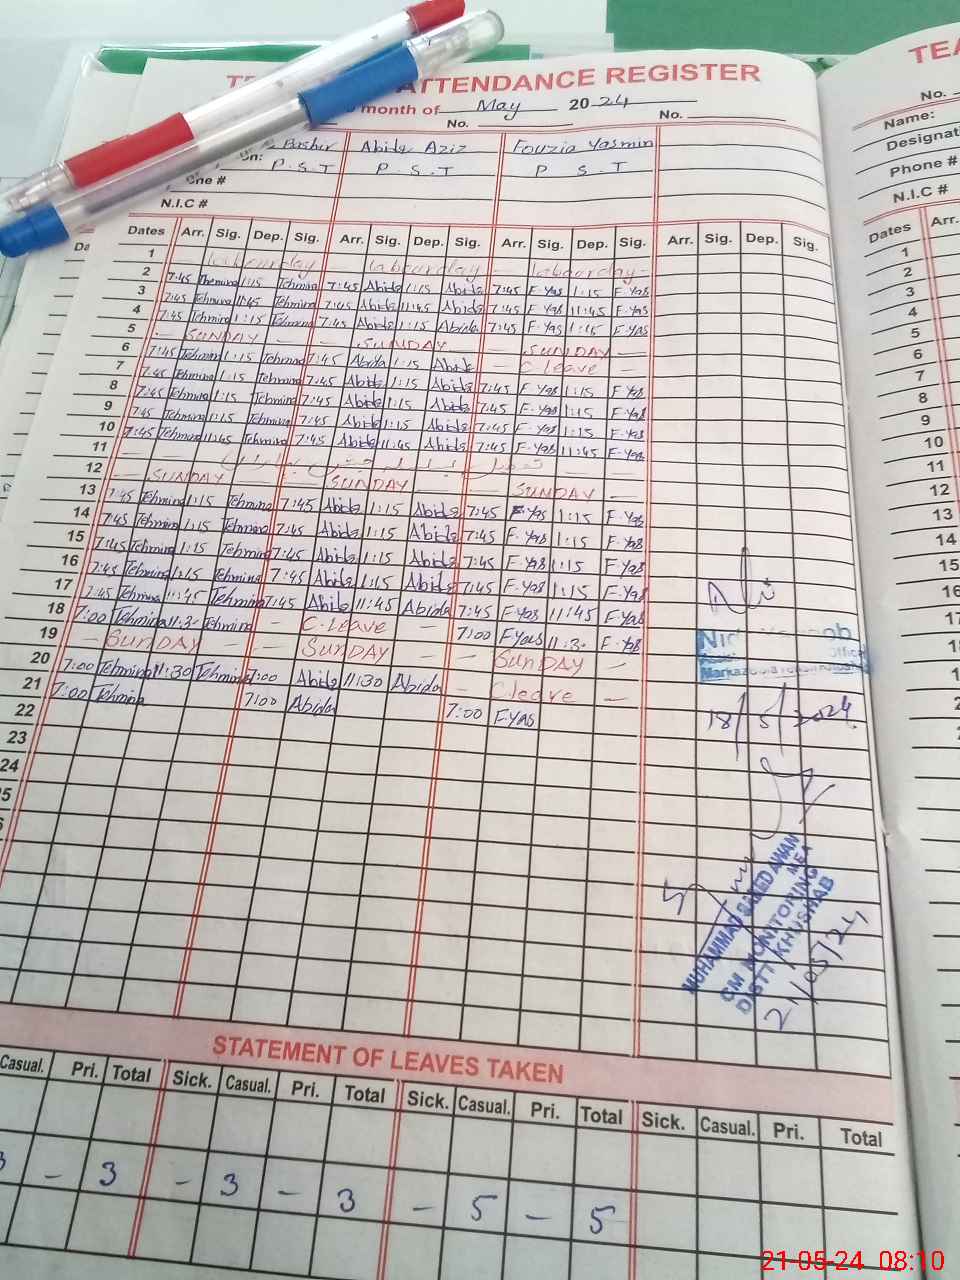 ATTENDANCE REGISTER
month of May 2024
No. No.
Bashir Abida Aziz Fouzia Yasmin
P.S.T P.S.T P S.T
N.I.C #
Dates Arr. Sig. Dep. Sig. Arr. Sig. Dep. Sig. Arr. Sig. Dep. Sig. Arr. Sig. Dep. Sig.
1 — labourday — labourday — labourday —
2 7:45 Tehmina 1:15 Tehmina 7:45 Abida 1:15 Abida 7:45 F.Yas 1:15 F.Yas
3 7:45 Tehmina 11:45 Tehmina 7:45 Abida 11:45 Abida 7:45 F.Yas 11:45 F.Yas
4 7:45 Tehmina 1:15 Tehmina 7:45 Abida 1:15 Abida 7:45 F.Yas 1:15 F.Yas
5 — SUNDAY — — SUNDAY — SUNDAY —
6 7:45 Tehmina 1:15 Tehmina 7:45 Abida 1:15 Abida — C leave —
7 7:45 Tehmina 1:15 Tehmina 7:45 Abida 1:15 Abida 7:45 F.Yas 1:15 F.Yas
8 7:45 Tehmina 1:15 Tehmina 7:45 Abida 1:15 Abida 7:45 F.Yas 1:15 F.Yas
9 7:45 Tehmina 1:15 Tehmina 7:45 Abida 1:15 Abida 7:45 F.Yas 1:15 F.Yas
10 7:45 Tehmina 11:45 Tehmina 7:45 Abida 11:45 Abida 7:45 F.Yas 11:45 F.Yas
11
12 — SUNDAY — — SUNDAY — SUNDAY —
13 7:45 Tehmina 1:15 Tehmina 7:45 Abida 1:15 Abida 7:45 F.Yas 1:15 F.Yas
14 7:45 Tehmina 1:15 Tehmina 7:45 Abida 1:15 Abida 7:45 F.Yas 1:15 F.Yas
15 7:45 Tehmina 1:15 Tehmina 7:45 Abida 1:15 Abida 7:45 F.Yas 1:15 F.Yas
16 7:45 Tehmina 1:15 Tehmina 7:45 Abida 1:15 Abida 7:45 F.Yas 1:15 F.Yas
17 7:45 Tehmina 11:45 Tehmina 7:45 Abida 11:45 Abida 7:45 F.Yas 11:45 F.Yas
18 7:00 Tehmina 11:30 Tehmina — C.leave — 7:00 F.Yas 11:30 F.Yas
19 — SUNDAY — — SUNDAY — — SUNDAY —
20 7:00 Tehmina 11:30 Tehmina 7:00 Abida 11:30 Abida — C leave —
21 7:00 Tehmina 7:00 Abida 7:00 F.Yas
22
23
24
18/5/2024
MUHAMMAD SAEED AWAN
CM MONITORING MEA
DISTT KHUSHAB
21/05/24
STATEMENT OF LEAVES TAKEN
Casual. Pri. Total Sick. Casual. Pri. Total Sick. Casual. Pri. Total Sick. Casual. Pri. Total
3 - 3 - 3 - 3 - 5 - 5
No.
Name:
Phone #
N.I.C #
Dates Arr.
1
2
3
4
5
6
7
8
9
10
11
12
13
14
15
21-05-24 08:10